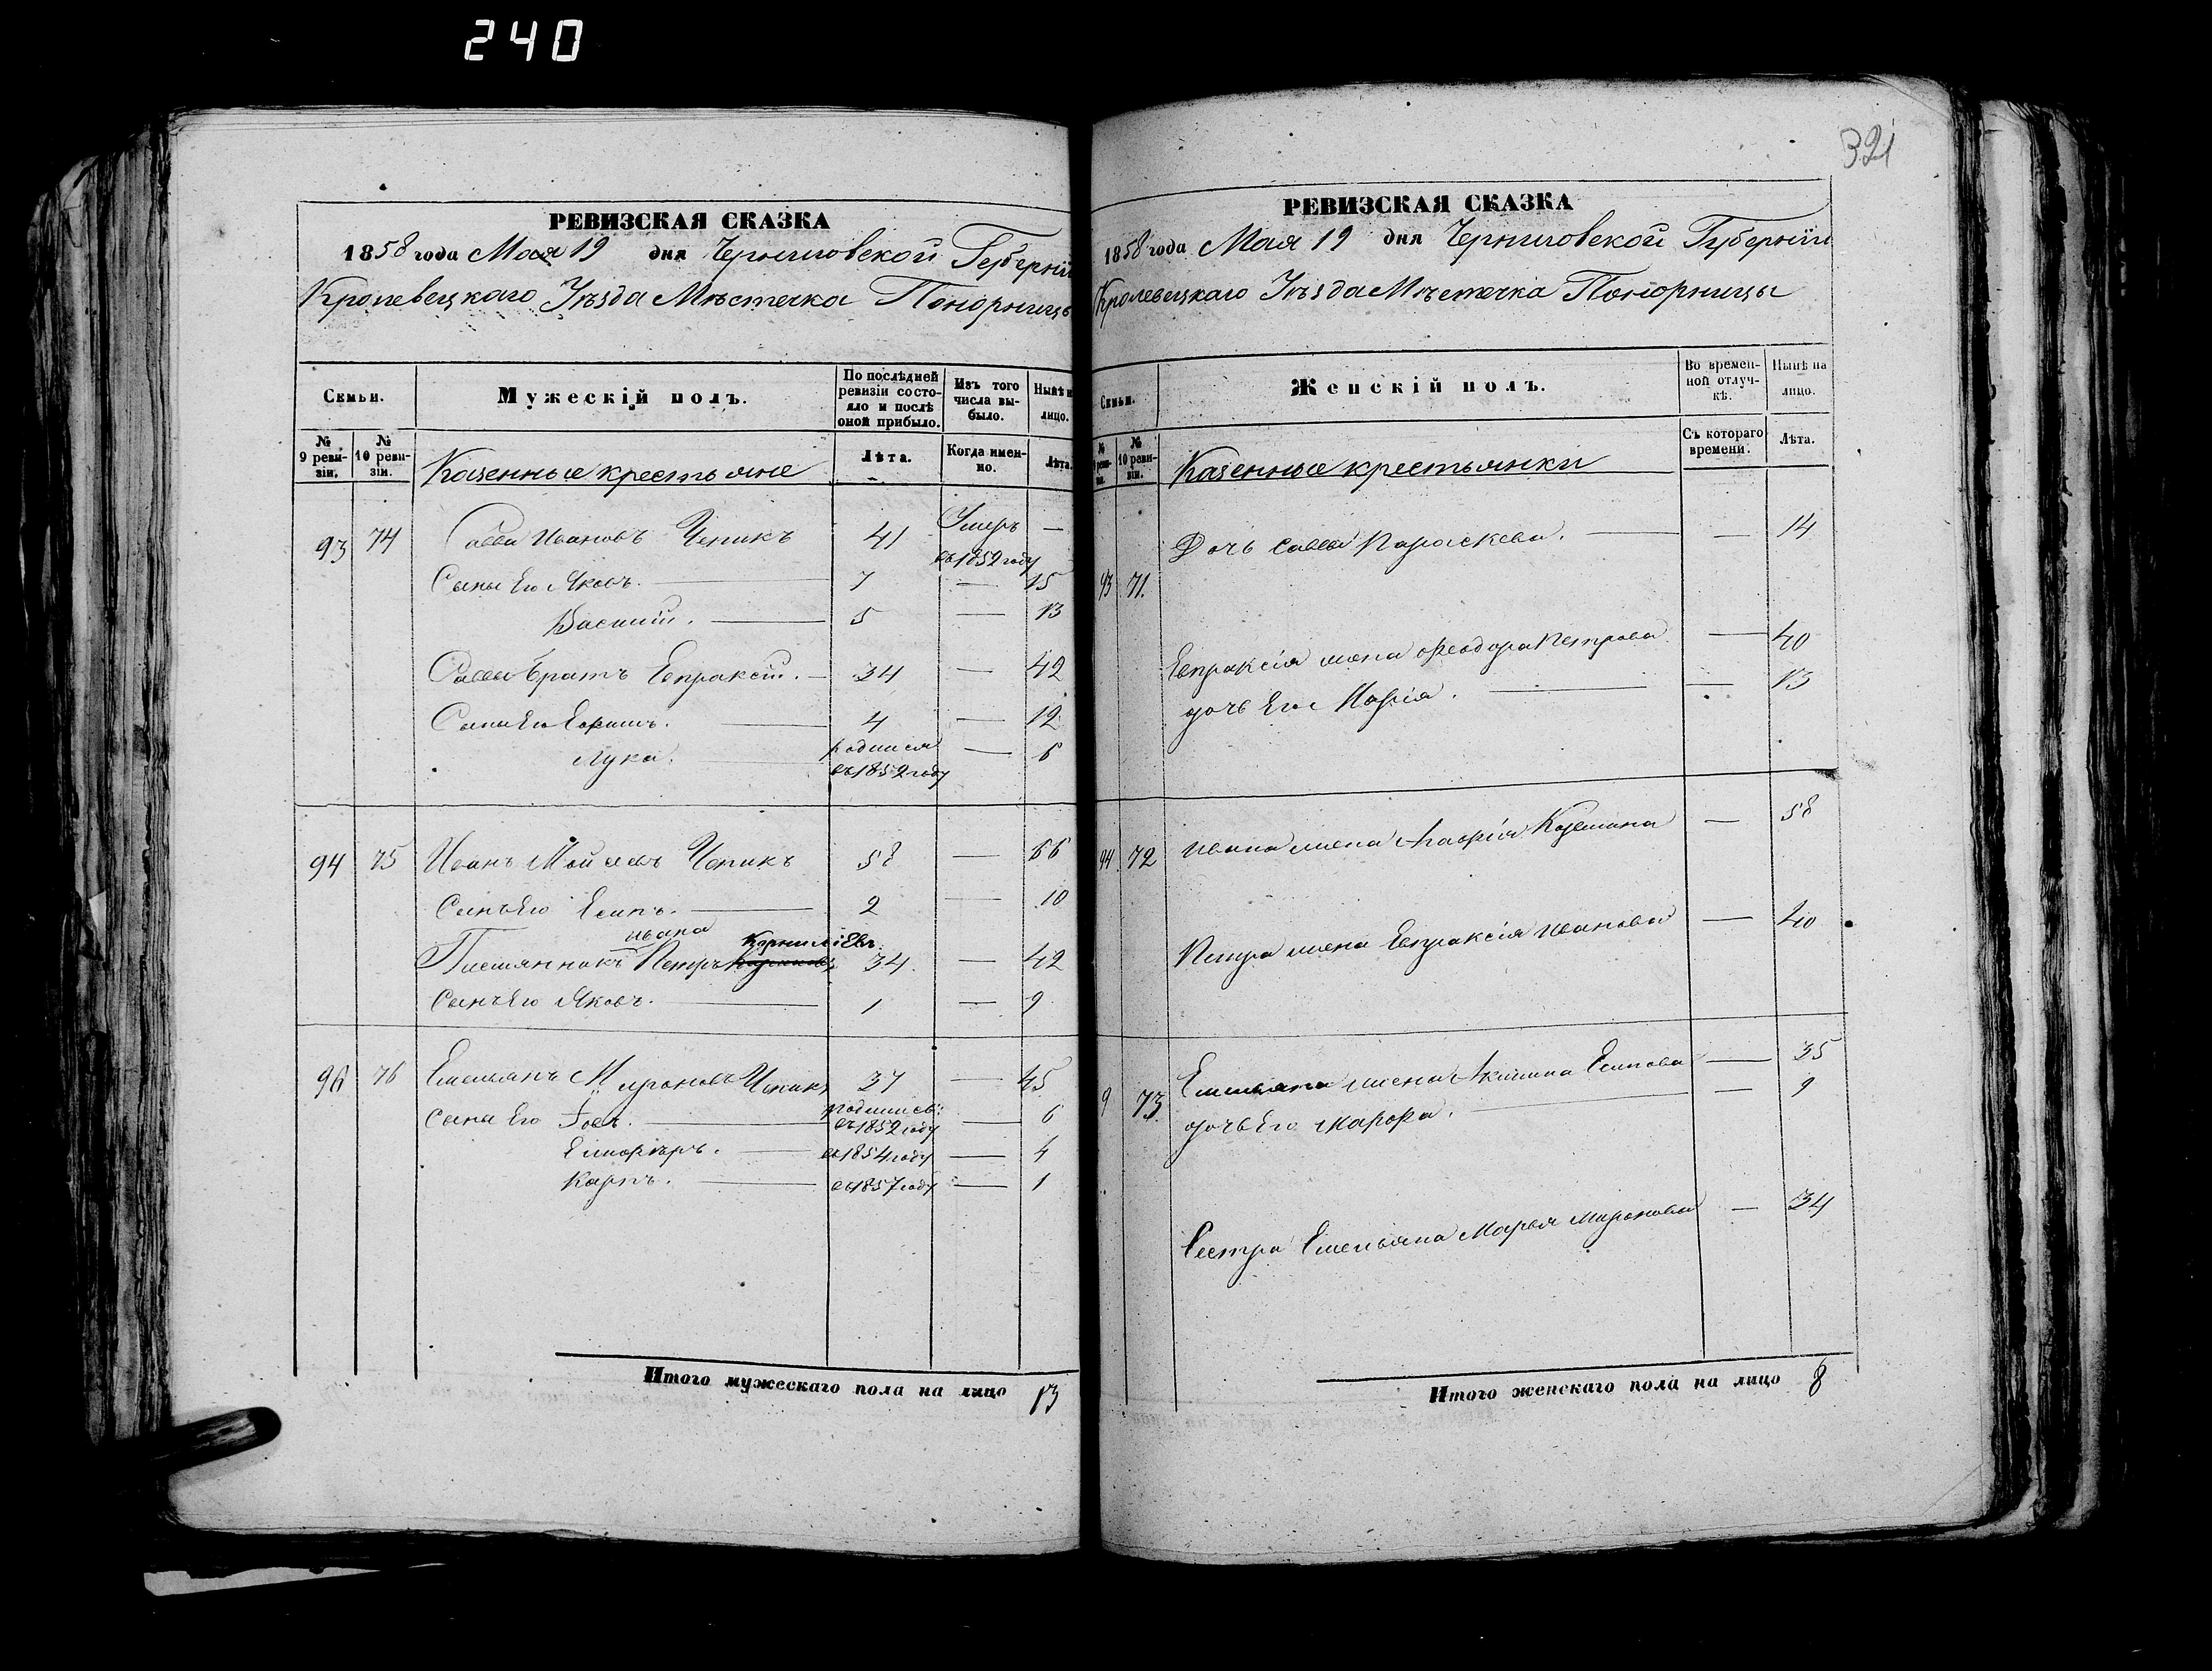 240
321
РЕВИЗСКАЯ СКАЗКА
1858 года Мая 19 дня Черниговской Губерніи
Кролевецкаго Уѣзда Мѣстечка Понорницы
Семьи.
Мужескій полъ.
По послѣдней ревизіи состояло и послѣ оной прибыло.
Изъ того числа выбыло.
Нынѣ на лицо.
№ 9 ревизіи.
№ 10 ревизіи.
Казенные крестьяне
Лѣта.
Когда именно.
Лѣта.
93 74 Савва Ивановъ Чепикъ 41 Умеръ въ 1852 году —
Сыны Его Яковъ. 7 — 15
Василій. 5 — 13
Саввы братъ Евпраксій. 34 — 42
Сыны Его 4 — 12
Лука. родился въ 1852 году — 6
94 75 Иванъ Чепикъ 58 — 66
Сынъ Его Есипъ. 2 — 10
Ивана Корниліевъ
Племянникъ Петръ 34. — 42
Сынъ Его Яковъ. 1 — 9
96 76 Емельянъ Мироновъ Чепикъ 37 — 45
Сыны Его родились: въ 1852 году — 6
въ 1854 году — 4
Карпъ. въ 1857 году — 1
Итого мужескаго пола на лицо 13
РЕВИЗСКАЯ СКАЗКА
1858 года Мая 19 дня Черниговской Губерніи
Кролевецкаго Уѣзда Мѣстечка Понорницы
Семьи.
Женскій полъ.
Во временной отлучкѣ.
Нынѣ на лицо.
№ 9 ревизіи.
№ 10 ревизіи.
Казенные крестьянки
Съ котораго времени.
Лѣта.
Дочь Саввы Параскева. — 14
93 71.
Евпраксія жена Феодора Петрова — 40
дочь Его Марія. — 13
94 72 Ивана жена Агафія — 58
Петра жена Евпраксія Иванова — 40
9 73. Емельяна жена Акилина Есипова — 35
дочь Его Марфа. — 9
Сестра Емельяна Марья Миронова — 34
Итого женскаго пола на лицо 8